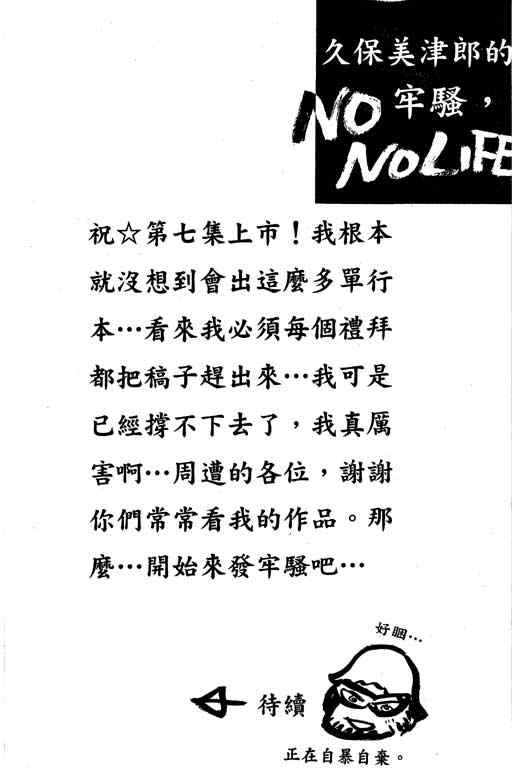 久保美津郎的
牢騷，
NO
NO LIFE
祝☆第七集上市！我根本
就沒想到會出這麼多單行
本…看來我必須每個禮拜
都把稿子趕出來…我可是
已經撐不下去了，我真厲
害啊…周遭的各位，謝謝
你們常常看我的作品。那
麼…開始來發牢騷吧…
好睏…
待續
正在自暴自棄。